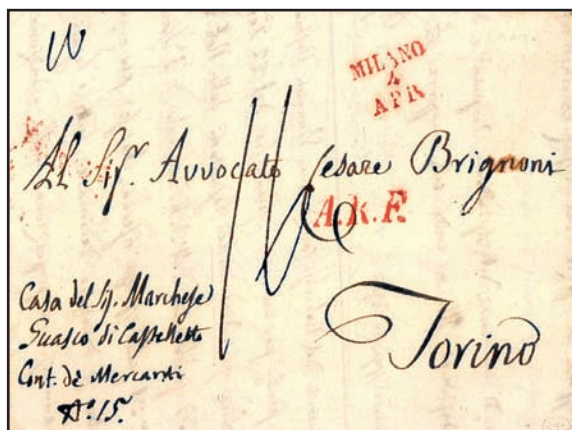 MILANO
4
APR
Al Sigr. Avvocato Cesare Brignoni
A.R.F.
Casa del Sigr. Marchese
Guasco di Castelletto
Cont. de Mercanti
N.º 15.
Torino